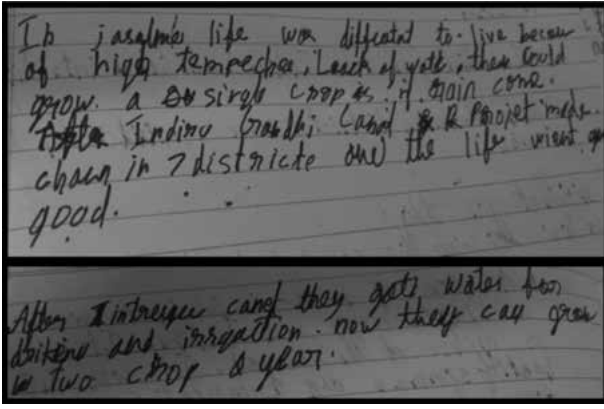 In jasalme life was difficatat to live becaus
of high tempechea, Leack of watt, they could
grow a sirgle crop is if rain come.
After Indinu Gandhi Canal & Projet made
chaen in 7 districte and the life vient
good.
After intreque canel they gets water for
drikine and irrgation now they cay grow
two crop a year.